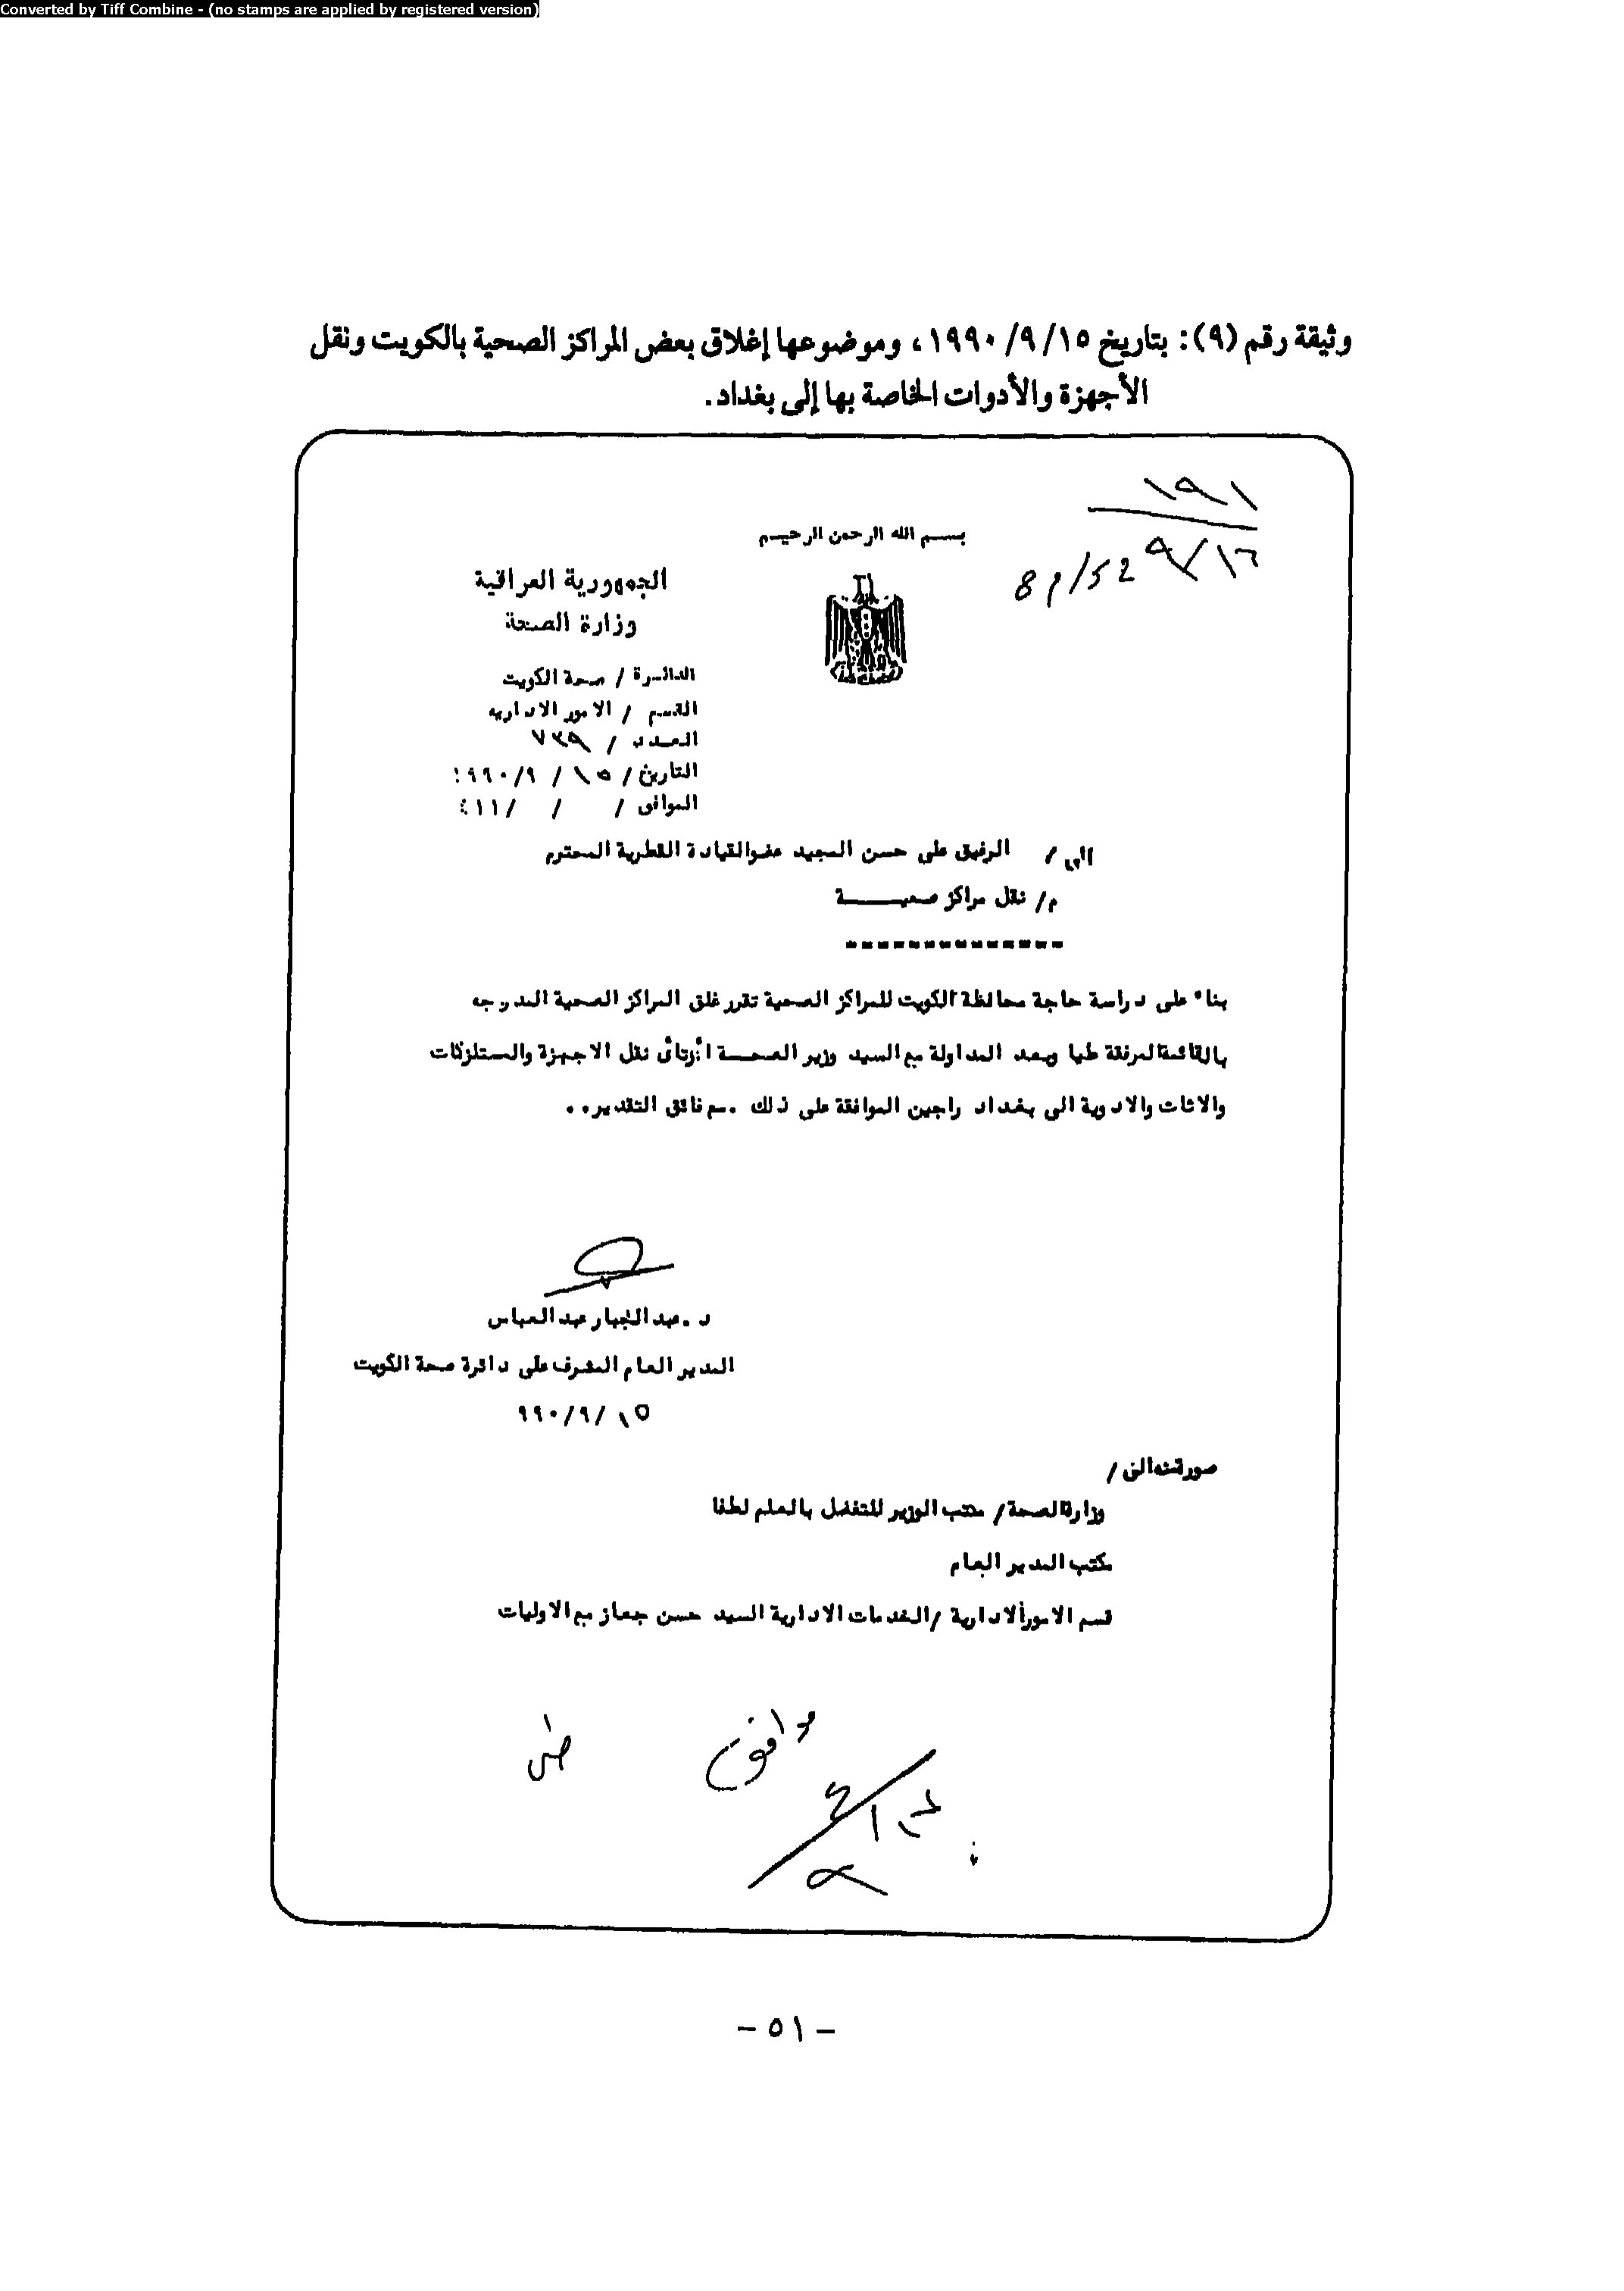 Converted by Tiff Combine - (no stamps are applied by registered version)
وثيقة رقم (٩): بتاريخ ١٥/ ٩/ ١٩٩٠، وموضوعها إغلاق بعض المراكز الصحية بالكويت ونقل
الأجهزة والأدوات الخاصة بها إلى بغداد.
١٩١
٩/١٦
بسم الله الرحمن الرحيم
الجمهورية العراقية
وزارة الصحة
الدائرة / صحة الكويت
القسم / الامور الاداريه
العدد / ٧٣٩
التاريخ / ١٥ / ٩/ ١٩٩٠
الموافق / / /١٤١١
الى / الرفيق علي حسن المجيد عضوالقيادة القطرية المحترم
م/ نقل مراكز صحيـــــة
--------------
بناء على دراسة حاجة محافظة الكويت للمراكز الصحية تقرر غلق المراكز الصحية المدرجه
بالقائمةالمرفقة طيا وبعد المداولة مع السيد وزير الصحـــة ارتأى نقل الاجهزة والمستلزمات
والاثاث والادوية الى بغداد راجين الموافقة على ذلك .مع فائق التقدير..
د .عبد الجبار عبد العباس
المدير العام المشرف على دائرة صحة الكويت
١٥ /٩/ ٩٩٠
صورةمنه الى /
وزارةالصحة/ مكتب الوزير للتفضل بالعلم لطفا
مكتب المدير العام
قسم الامورالادارية /الخدمات الادارية السيد حسن جماز مع الاوليات
موافق
- ٥١ -